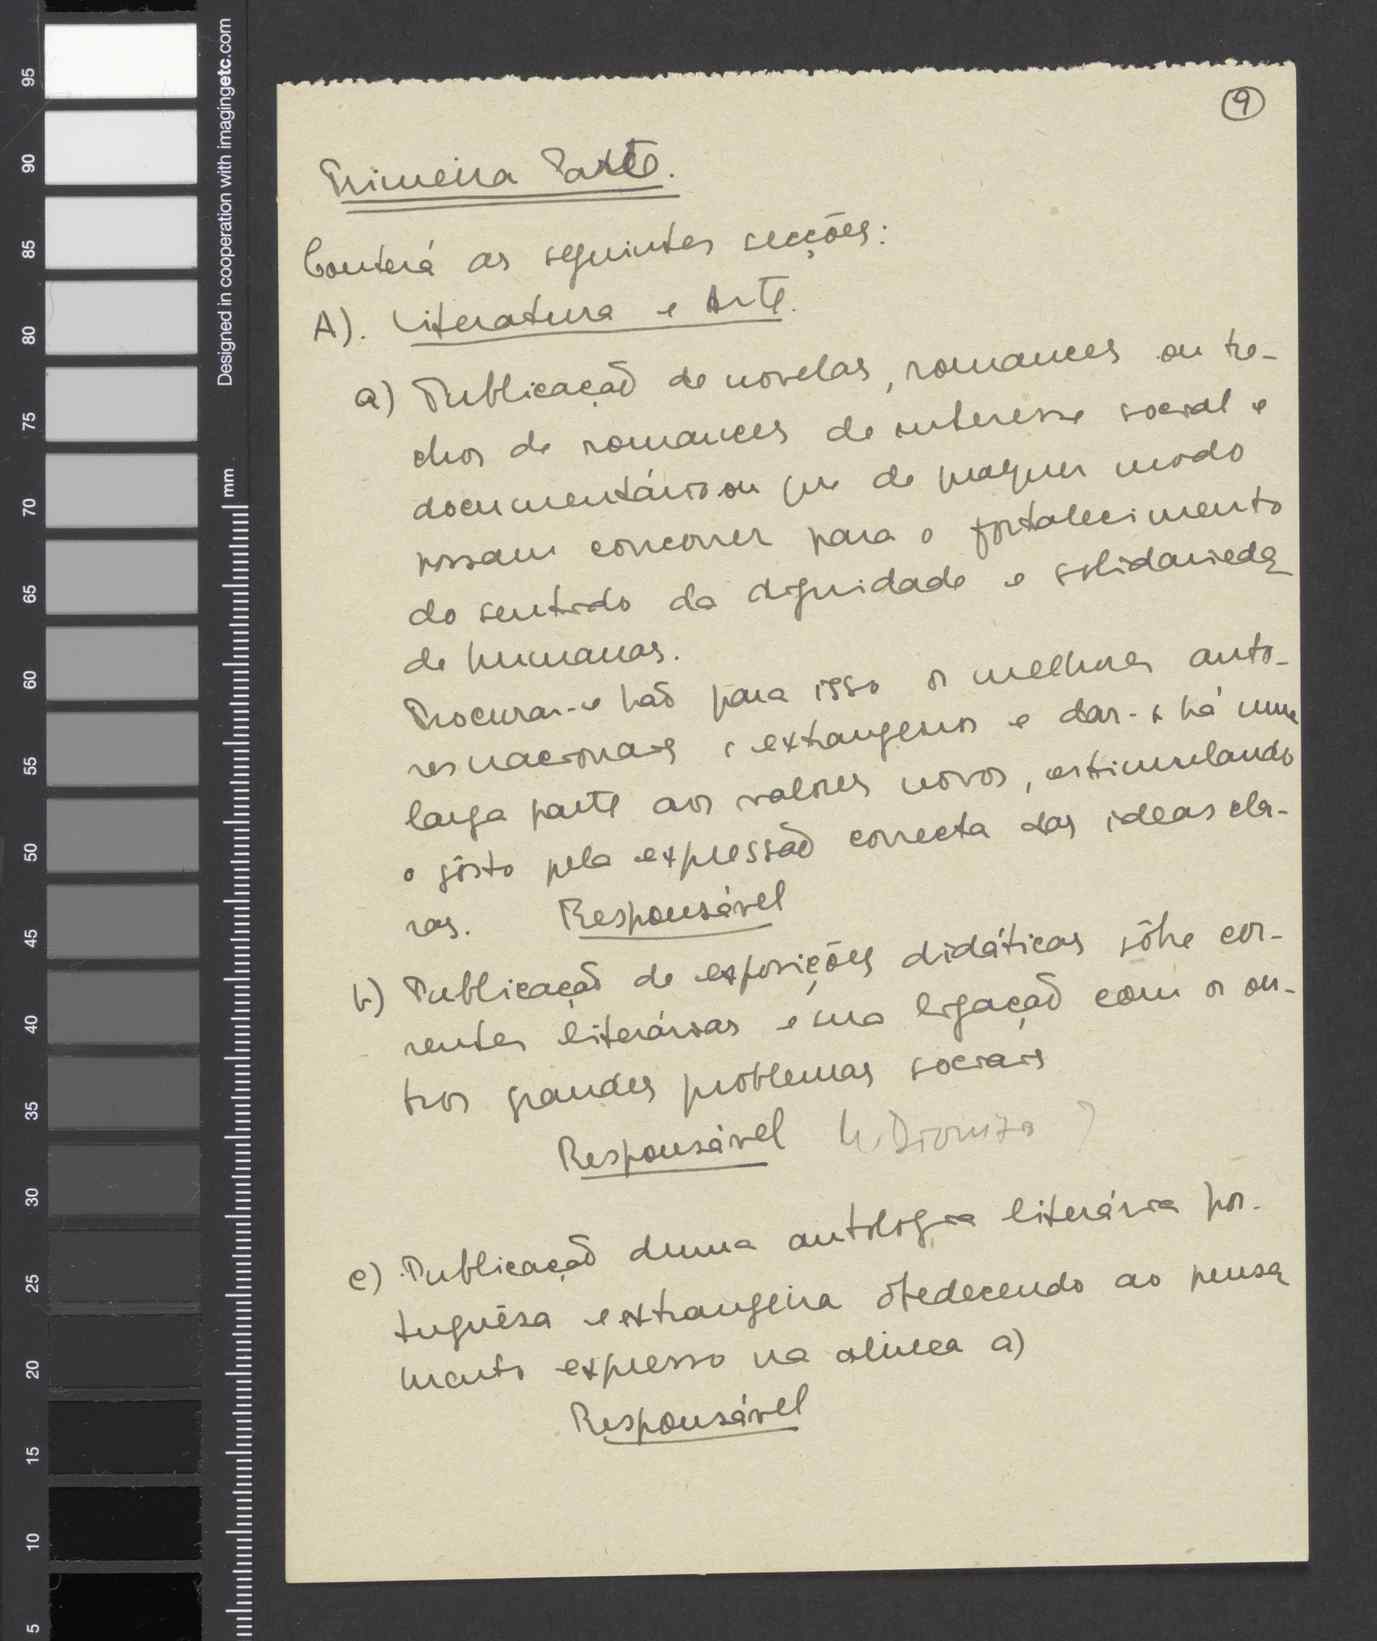 9
Primeira Parte.
Conterá as seguintes secções:
A). Literatura e Arte.
a) Publicação de novelas, romances ou tre-
chos de romances de interesse social e
documentário ou que de qualquer modo
possam concorrer para o fortaleicimento
do sentido da dignidade e solidarieda
de humanas.
Procurar-se hão para isso os melhores auto-
res nacionais e extrangeiros e dar-se há uma
larga parte aos valores novos, estimulando
o gôsto pela expressão correcta das ideas cla-
ras. Responsável
b) Publicação de exposições didáticas sôbre cor-
rentes literárias e sua ligação com os ou-
tros grandes problemas sociais
Responsável M. Dionisio ?
c) Publicação duma antologia literária por-
tuguêsa e extrangeira obedecendo ao pensa
mento expresso na alinea a)
Responsável
Designed in cooperation with imagingetc.com
mm
95
90
85
80
75
70
65
60
55
50
45
40
35
30
25
20
15
10
5